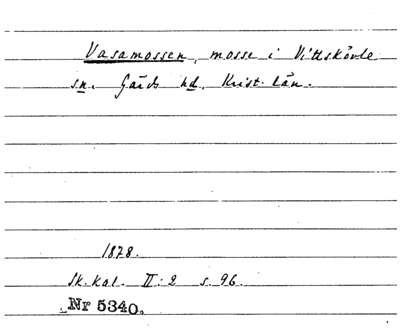 Vasamossen, mosse i Vittskövle
sn. Gärds hd. Krist. län.
1878.
Sk. kal. II: 2 s. 96.
Nr 5340.